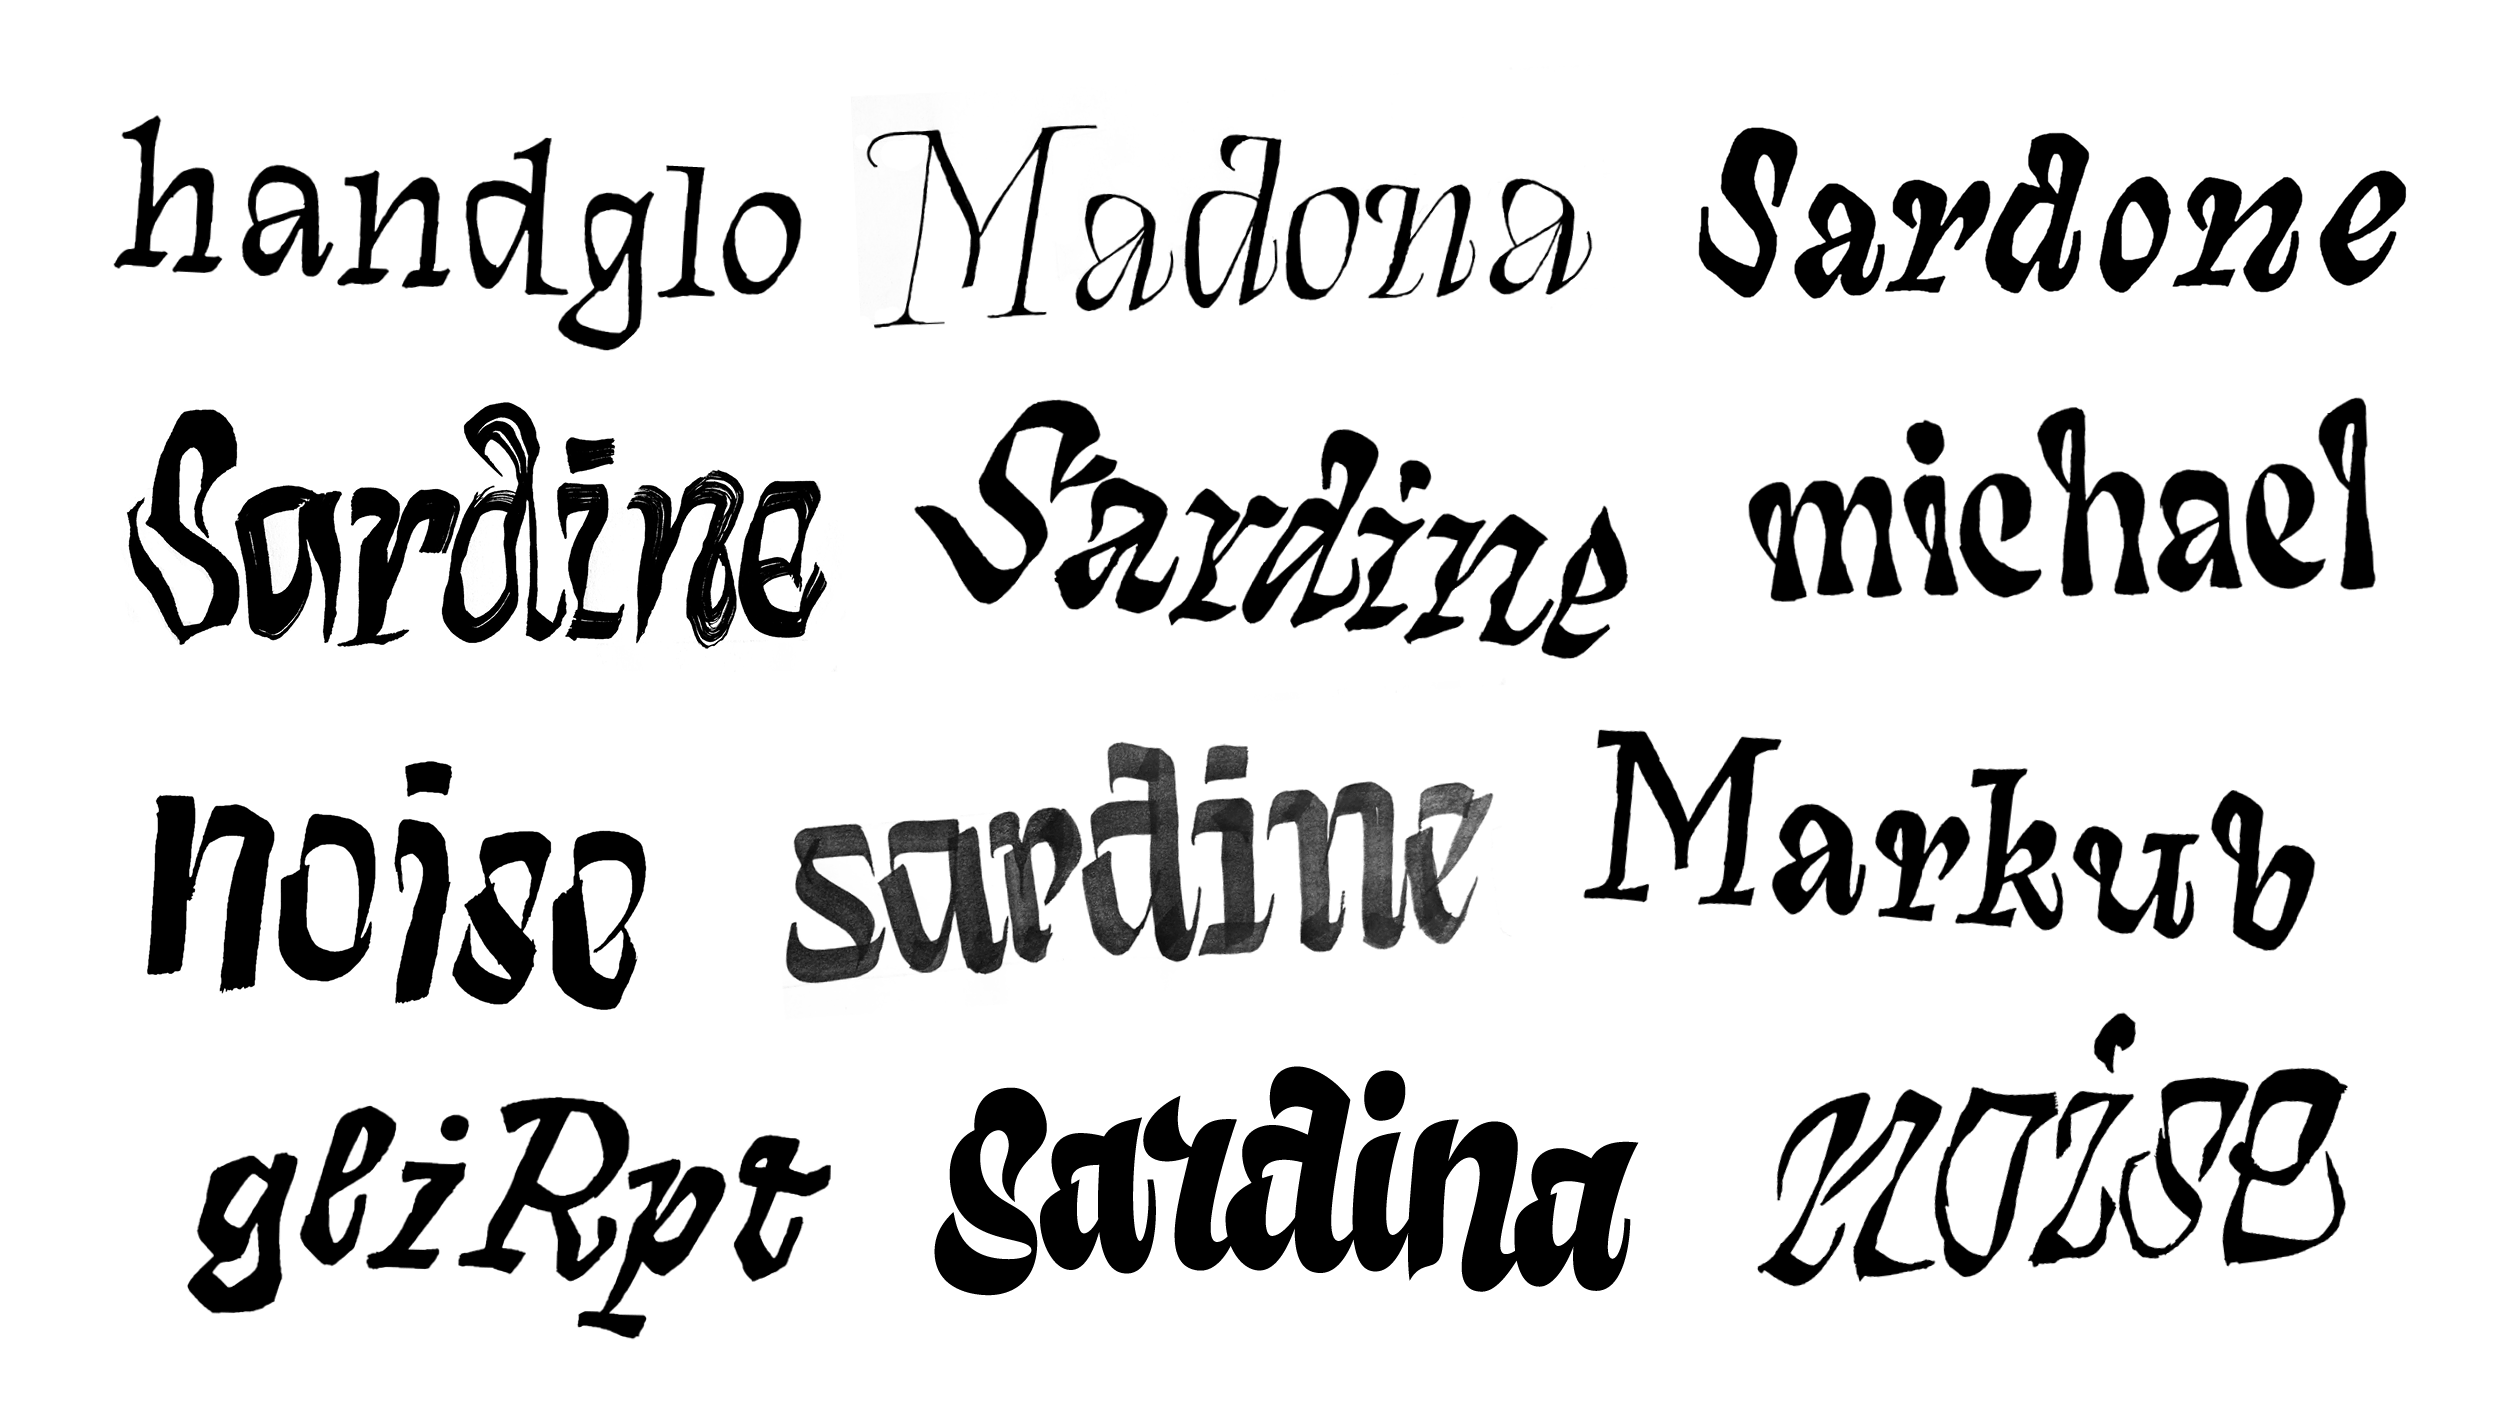 handglo Madona Sardone
Sardine Sardine michael
noise sardine Markub
gliRpt Sardina noise